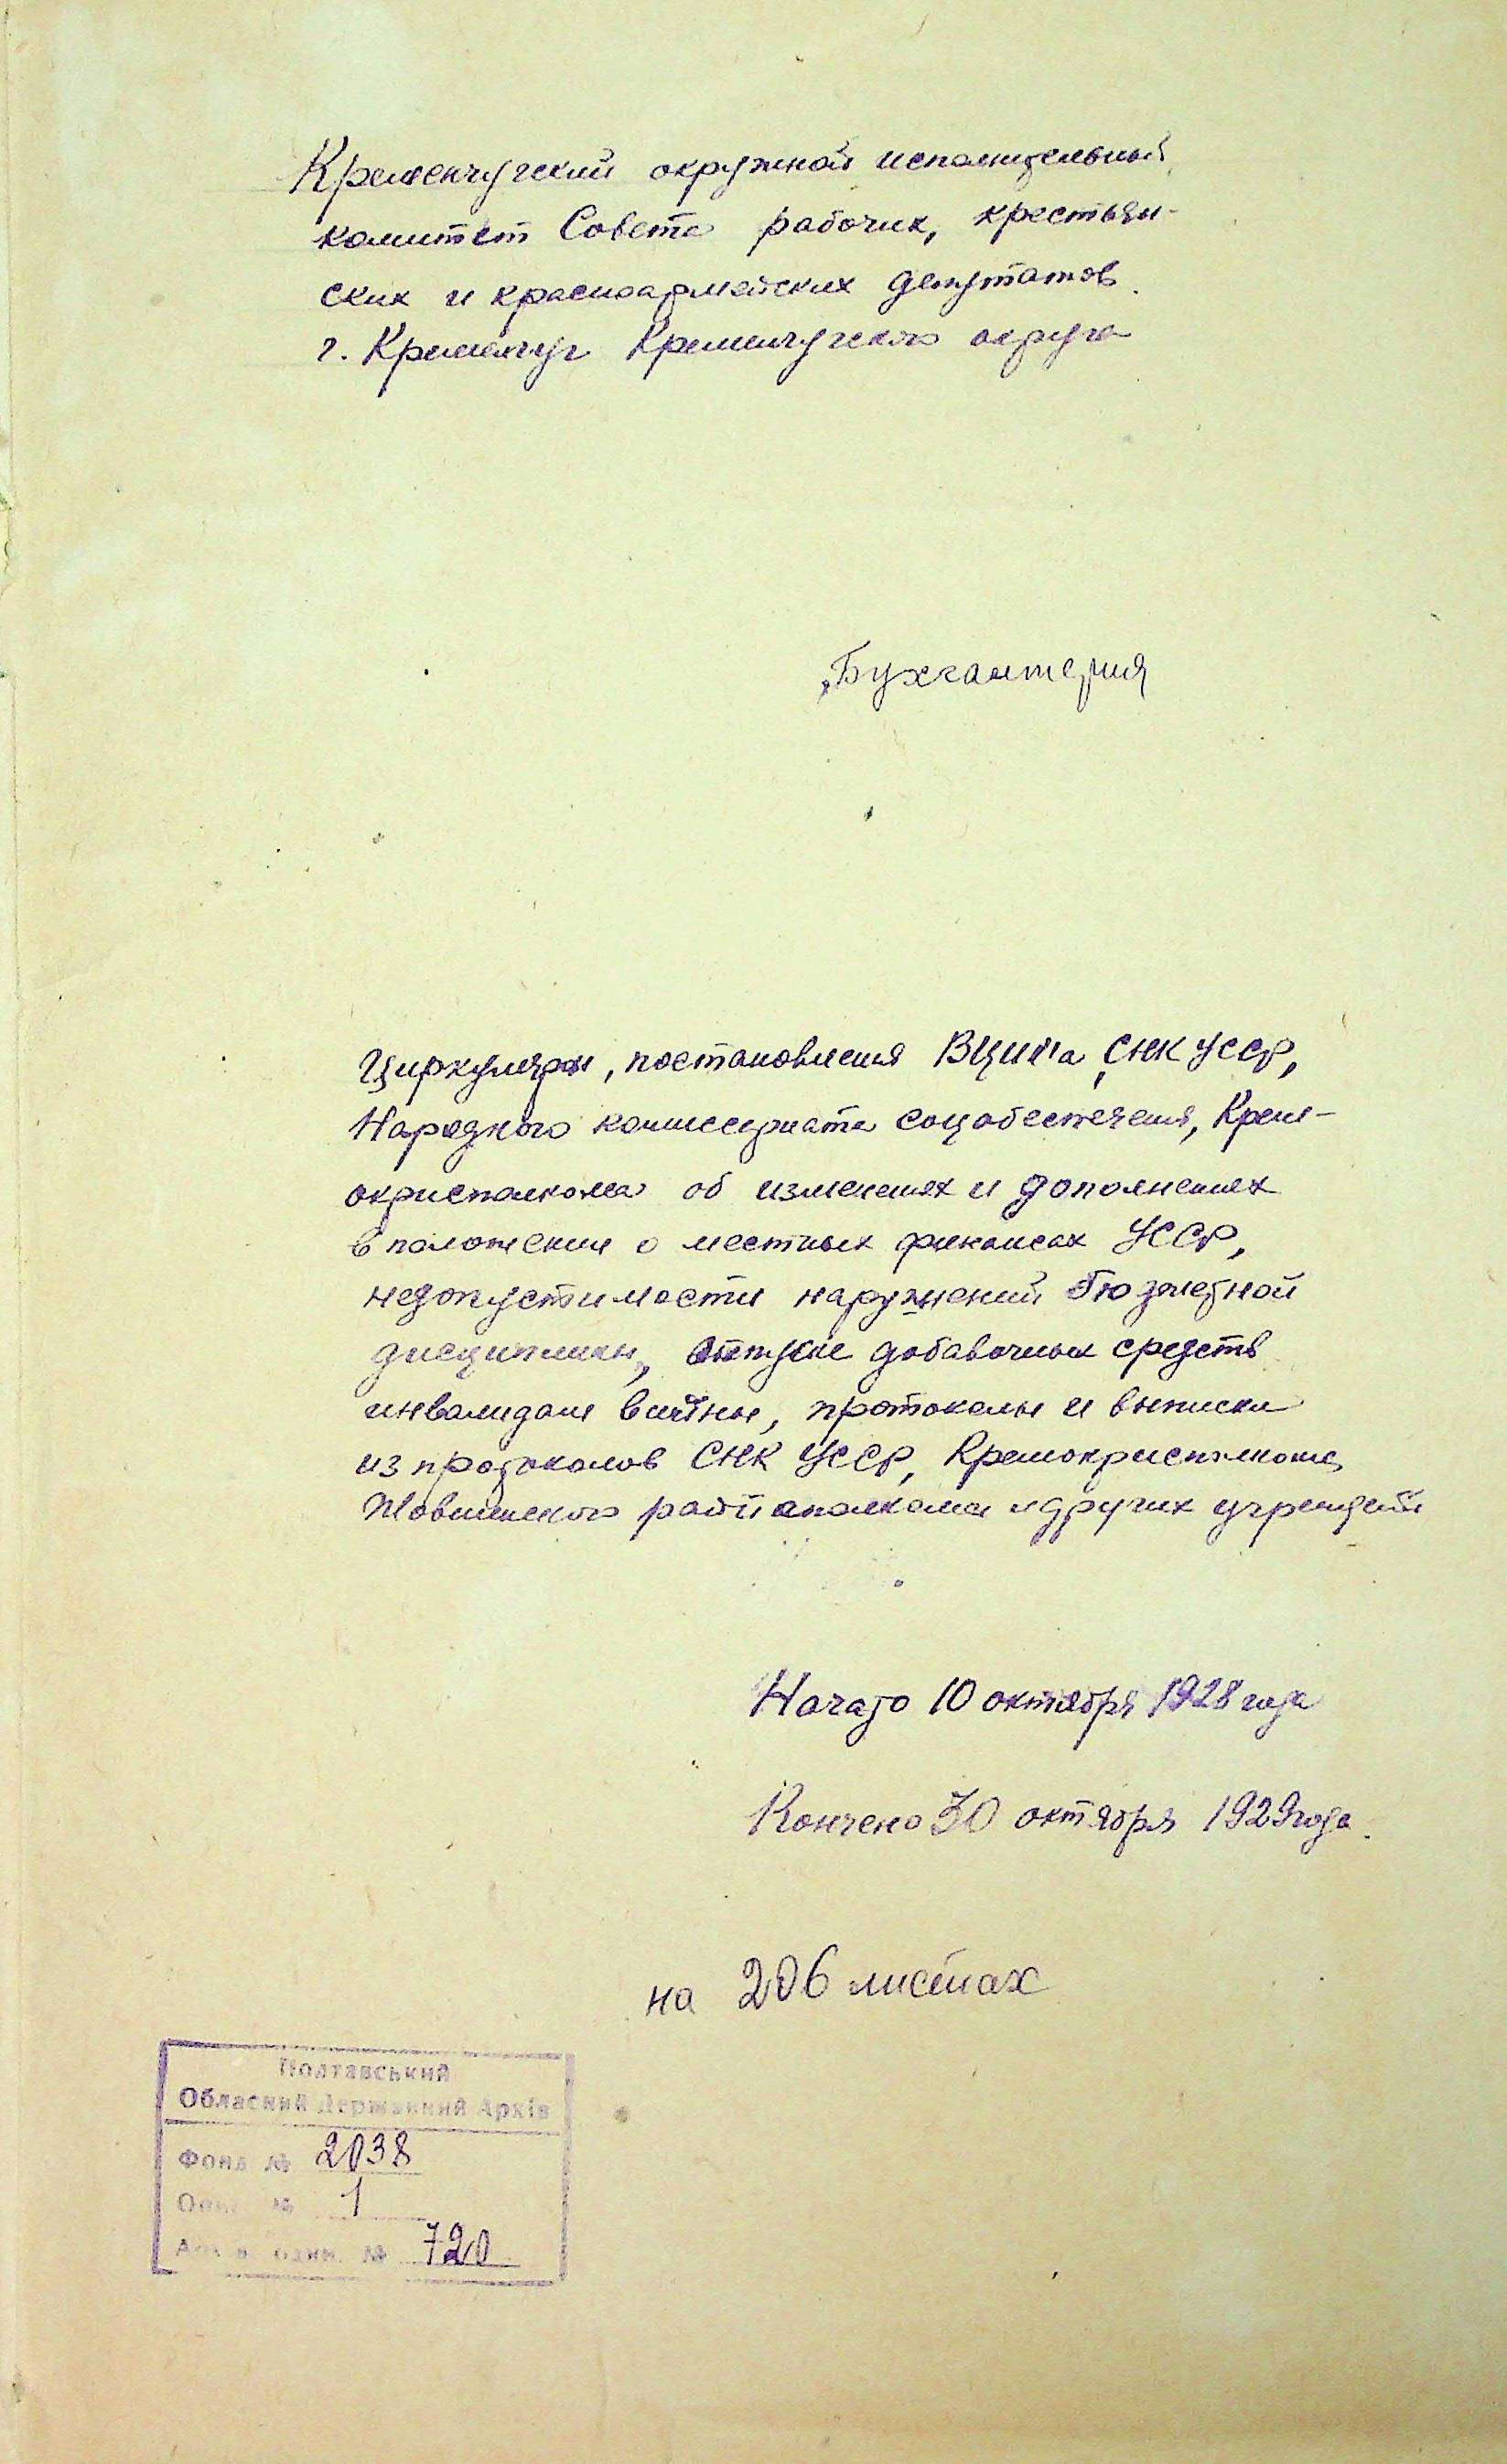 Кременчугский окружной исполнительный
комитет Совета рабочих, крестьян-
ских и красноармейских депутатов.
г. Кременчуг Кременчугского округа
Бухгалтерия
Циркуляры, постановления ВЦИКа, СНК УССР,
Народного комиссариата соцобеспечения, Крем-
окрисполкома об изменениях и дополнениях
в положении о местных финансах УССР,
недопустимости нарушений бюджетной
дисциплины, отпуске добавочных средств
инвалидам войны, протоколы и выписки
из протоколов СНК УССР, Кремокрисполкома,
райисполкома и других учреждений
Начато 10 октября 1928 года
Кончено 30 октября 1929 года.
на 206 листах
Полтавський
Обласний Державний Архів
Фонд № 2038
Опис № 1
один. № 720